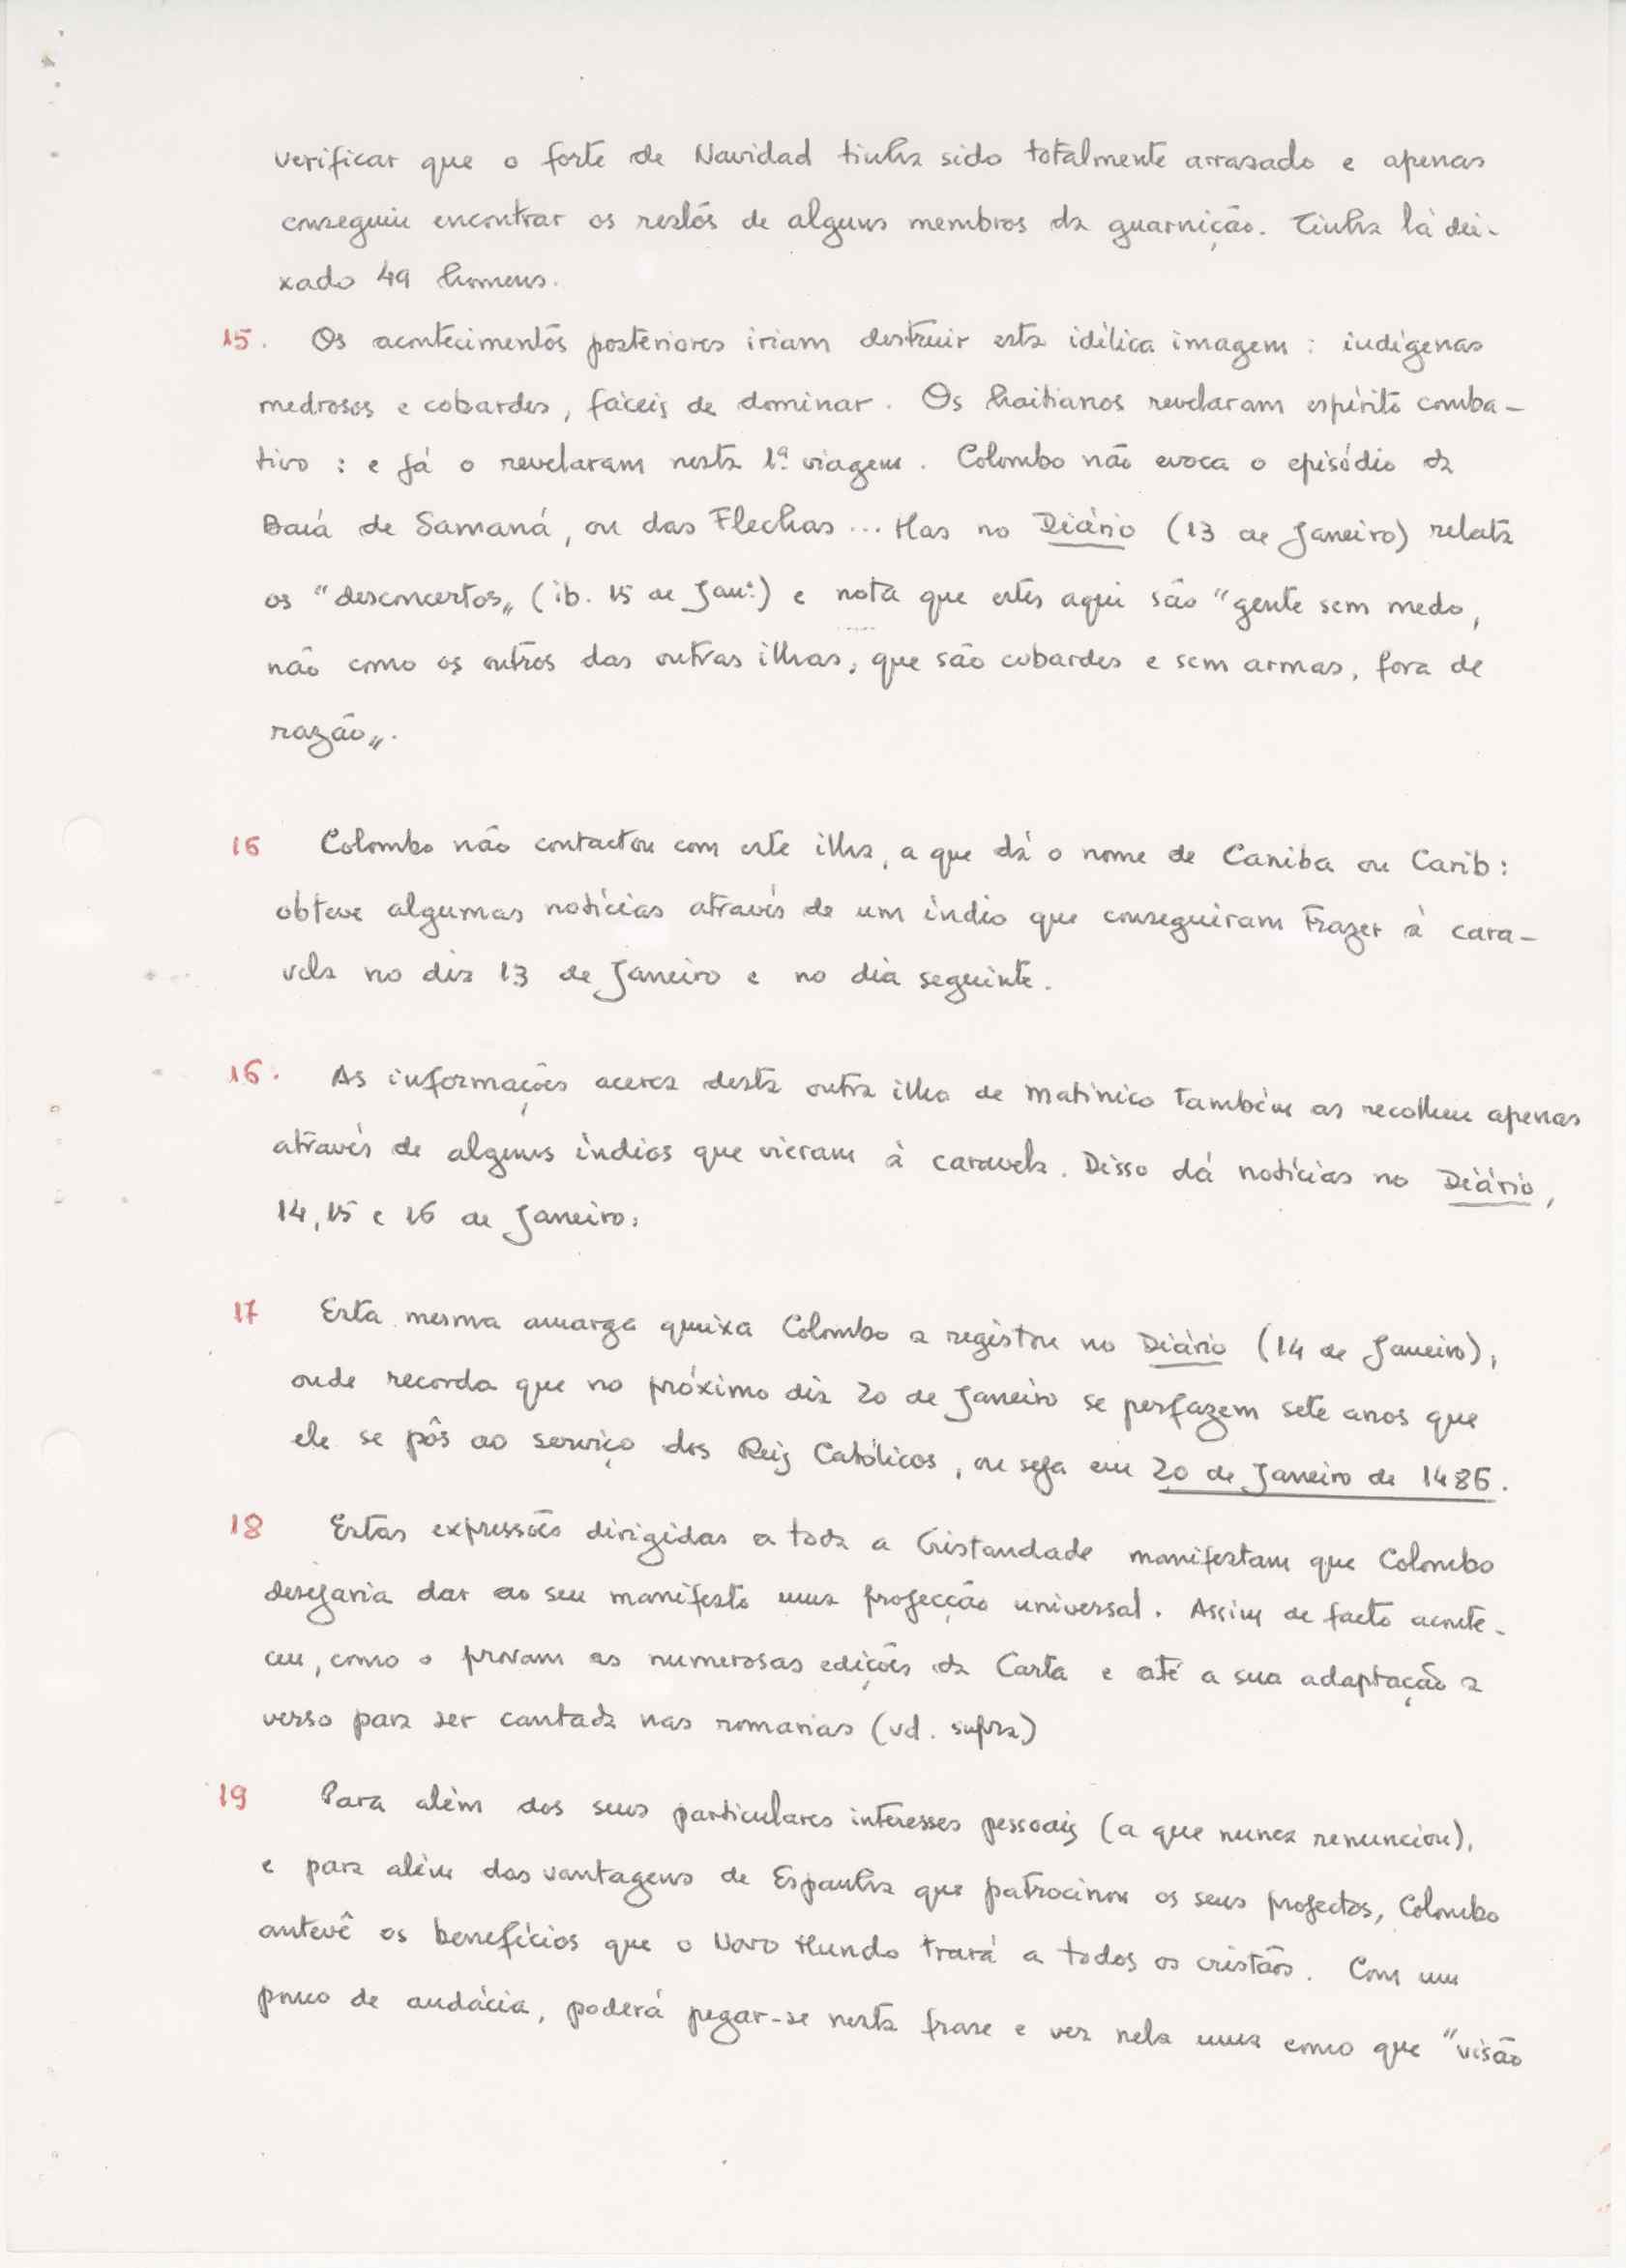 verificar que o forte de Navidad tinha sido totalmente arrasado e apenas
conseguiu encontrar os restos de alguns membros da guarnição. Tinha lá dei-
xado 49 homens.
15. Os acontecimentos posteriores iriam destruir esta idílica imagem : indígenas
medrosos e cobardes, fáceis de dominar. Os haitianos revelaram espírito comba-
tivo : e já o revelaram nesta 1ª viagem. Colombo não evoca o episódio da
Baiá de Samaná, ou das Flechas ... Mas no Diário (13 de Janeiro) relata
os "desconcertos„ (ib. 15 de Janº) e nota que estes aqui são "gente sem medo,
não como os outros das outras ilhas, que são cobardes e sem armas, fora de
razão„.
16 Colombo não contactou com este ilha, a que dá o nome de Caniba ou Carib:
obteve algumas notícias através de um índio que conseguiram trazer à cara-
vela no dia 13 de Janeiro e no dia seguinte.
16. As informações acerca desta outra ilha de Matinico também as recolheu apenas
através de alguns índios que vieram à caravela. Disso dá notícias no Diário,
14, 15 e 16 de Janeiro.
17 Esta mesma amarga queixa Colombo a registou no Diário (14 de Janeiro),
onde recorda que no próximo dia 20 de Janeiro se perfazem sete anos que
ele se pôs ao serviço dos Reis Católicos, ou seja em 20 de Janeiro de 1486.
18 Estas expressões dirigidas a toda a Cristandade manifestam que Colombo
desejaria dar ao seu manifesto uma projecção universal. Assim de facto aconte-
ceu, como o provam as numerosas edições da Carta e até a sua adaptação a
verso para ser cantada nas romarias (vd. supra)
19 Para além dos seus particulares interesses pessoais (a que nunca renunciou),
e para além das vantagens de Espanha que patrocinou os seus projectos, Colombo
antevê os benefícios que o Novo Mundo trará a todos os cristãos. Com um
pouco de audácia, poderá pegar-se nesta frase e ver nela uma como que "visão